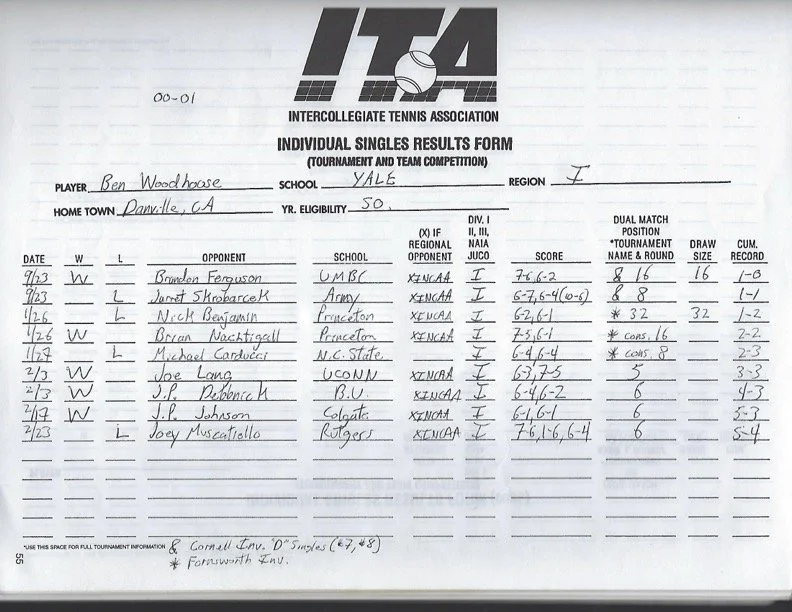 00-01
ITA
INTERCOLLEGIATE TENNIS ASSOCIATION
INDIVIDUAL SINGLES RESULTS FORM
(TOURNAMENT AND TEAM COMPETITION)
PLAYER Ben Woodhouse SCHOOL YALE REGION I
HOME TOWN Danville, CA YR. ELIGIBILITY SO.
DATE W L OPPONENT SCHOOL (X) IF REGIONAL OPPONENT DIV. I II, III, NAIA JUCO SCORE DUAL MATCH POSITION *TOURNAMENT NAME & ROUND DRAW SIZE CUM. RECORD
9/23 W Brandon Ferguson UMBC XINCAA I 7-6, 6-2 & 16 16 1-0
9/23 L Jarret Skrobarcek Army XINCAA I 6-7, 6-4 (10-6) & 8 1-1
1/26 L Nick Benjamin Princeton XINCAA I 6-2, 6-1 * 32 32 1-2
1/26 W Brian Nachtigall Princeton XINCAA I 7-5, 6-1 * cons. 16 2-2
1/27 L Michael Carducci N.C. State I 6-4, 6-4 * cons. 8 2-3
2/3 W Joe Lang UCONN XINCAA I 6-3, 7-5 5 3-3
2/3 W J.P. B.U. XINCAA I 6-4, 6-2 6 4-3
2/17 W J.P. Johnson Colgate XINCAA I 6-1, 6-1 6 5-3
2/23 L Joey Muscatiello Rutgers XINCAA I 7-6, 1-6, 6-4 6 5-4
*USE THIS SPACE FOR FULL TOURNAMENT INFORMATION & Cornell Inv. "D" Singles (#7, #8)
* Farnsworth Inv.
55